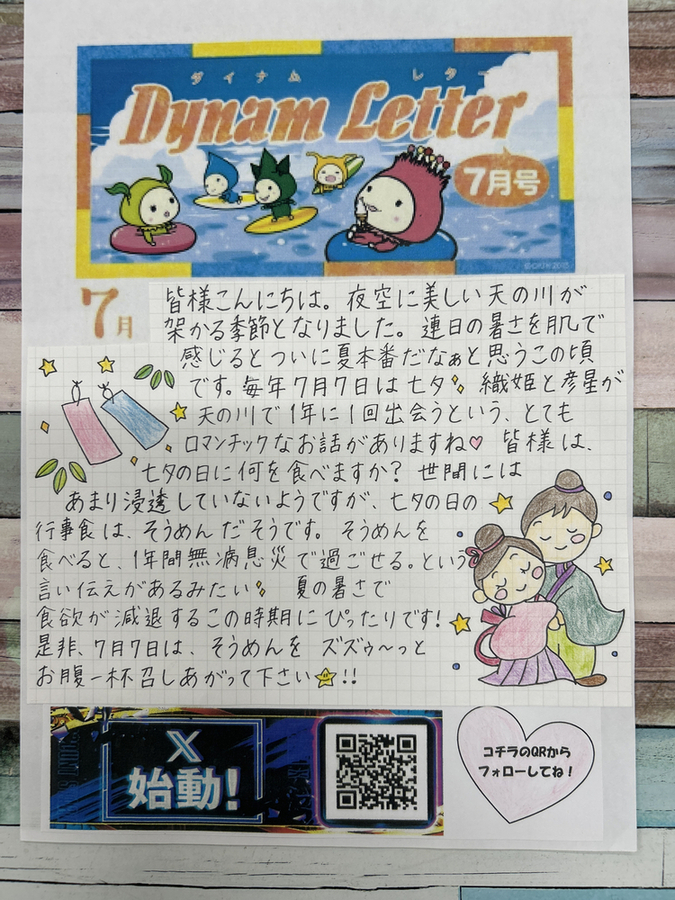 ダイナム レター
Dynam Letter
7月号
7月
皆様こんにちは。夜空に美しい天の川が
架かる季節となりました。連日の暑さを肌で
感じるとついに夏本番だなぁと思うこの頃
です。毎年7月7日は七夕 織姫と彦星が
天の川で1年に1回出会うという、とても
ロマンチックなお話がありますね♡ 皆様は、
七夕の日に何を食べますか? 世間には
あまり浸透していないようですが、七夕の日の
行事食は、そうめんだそうです。そうめんを
食べると、1年間無病息災で過ごせる。という
言い伝えがあるみたい 夏の暑さで
食欲が減退するこの時期にぴったりです!
是非、7月7日は、そうめんを ズズゥ〜っと
お腹一杯召しあがって下さい!!
X
始動!
コチラのQRから
フォローしてね!